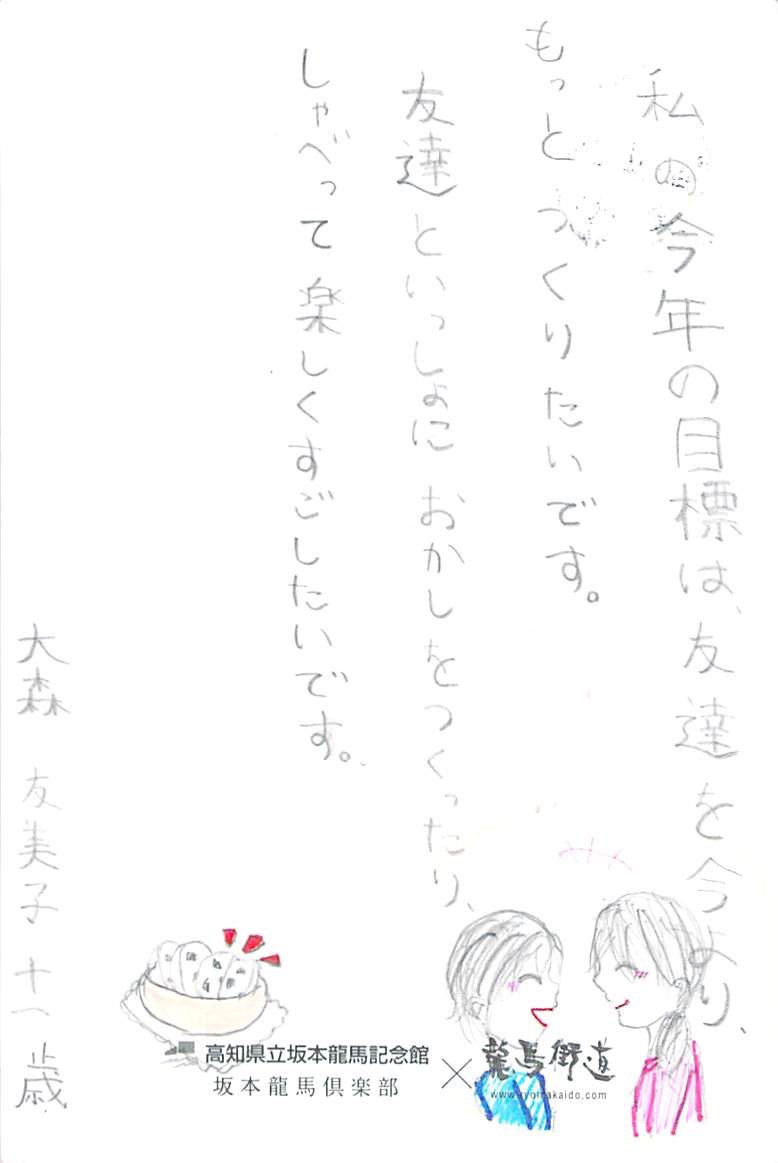 私の今年の目標は、友達を今より、
もっとつくりたいです。
友達といっしょにおかしをつくったり、
しゃべって楽しくすごしたいです。
大森 友美子 十一歳
高知県立坂本龍馬記念館
坂本龍馬倶楽部
×
龍馬街道
www.ryomakaido.com